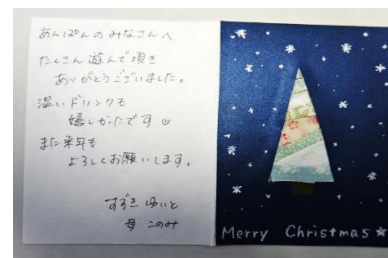 あんぱんのみなさんへ
たくさん遊んで頂き
ありがとうございました。
温いドリンクも
嬉しかったです
また来年も
よろしくお願いします。
すずき ゆいと
母 このみ
Merry Christmas